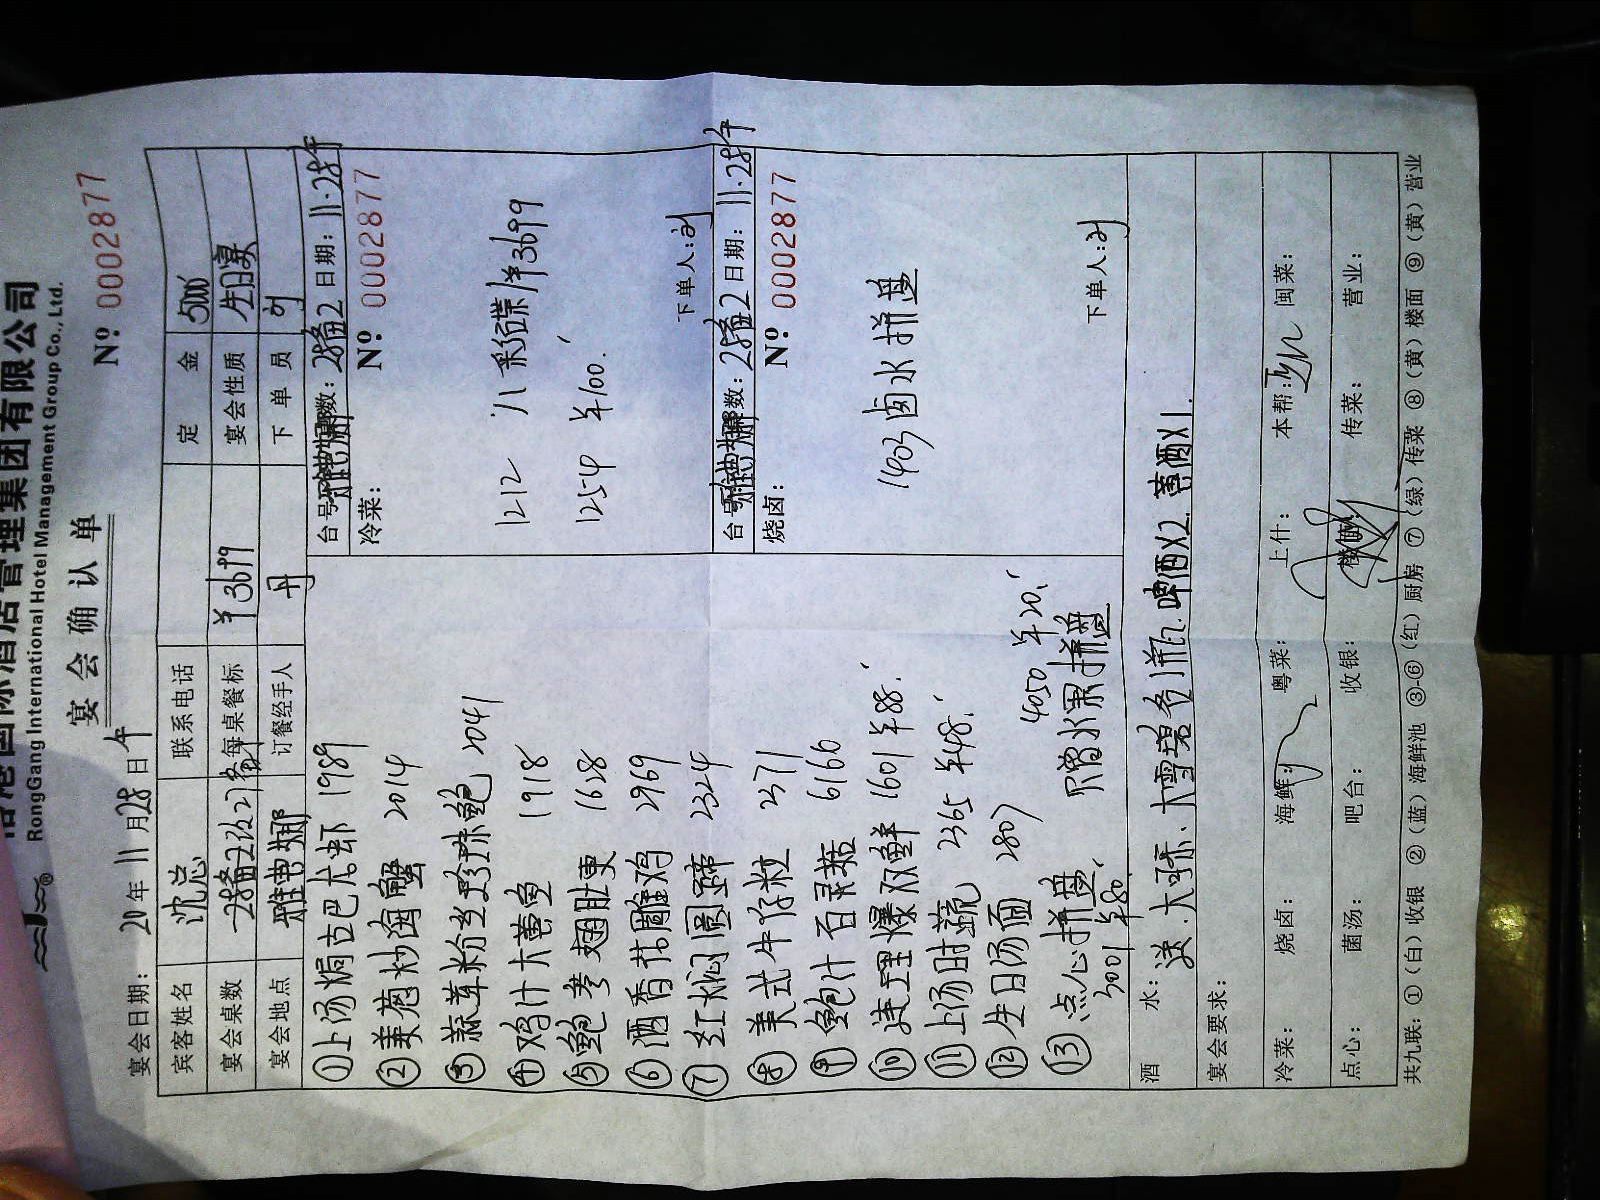 港国际酒店管理集团有限公司
RongGang International Hotel Management Group Co., Ltd.
宴会确认单
№ 0002877
宴会日期: 20 年 11 月 28 日 午
宾客姓名 沈总 联系电话 定金 5000
宴会桌数 28备2 每桌餐标 ¥3699 宴会性质 生日宴
宴会地点 雅典娜 订餐经手人 丹 下单员 刘
①上汤焗古巴龙虾 1989
②姜葱炒海蟹 2014
③蒜茸粉丝珍珠鲍 2041
④鸡汁大黄鱼 1918
⑤鲍参翅肚更 1628
⑥酒香抹雕鸡 2969
⑦红焖圆蹄 2324
⑧美式牛仔粒 2371
⑨鲍汁百灵菇 6166
⑩ 爆双鲜 1601 ¥88.
⑪上汤时蔬 2365 ¥48.
⑫生日汤面 2807
4050 ¥20.
⑬点心拼盘. 水果拼盘
3001 ¥80.
台号: 雅典娜 数: 28备2 日期: 11.28午
冷菜: № 0002877
1212 八彩碟 ¥3699
1254 ¥100.
下单人: 刘
台号: 雅典娜 数: 28备2 日期: 11.28午
烧卤: № 0002877
1403 卤水拼盘
下单人: 刘
酒水: 送.大可乐.大雪碧各1瓶.啤酒X2.黄酒X1.
宴会要求:
冷菜: 烧卤: 海鲜: 粤菜: 上什: 本帮: 闽菜:
点心: 菌汤: 吧台: 收银: 厨房: 传菜: 营业:
共九联: ①(白)收银 ②(蓝)海鲜池 ③-⑥(红)厨房 ⑦(绿)传菜 ⑧(黄)楼面 ⑨(黄)营业